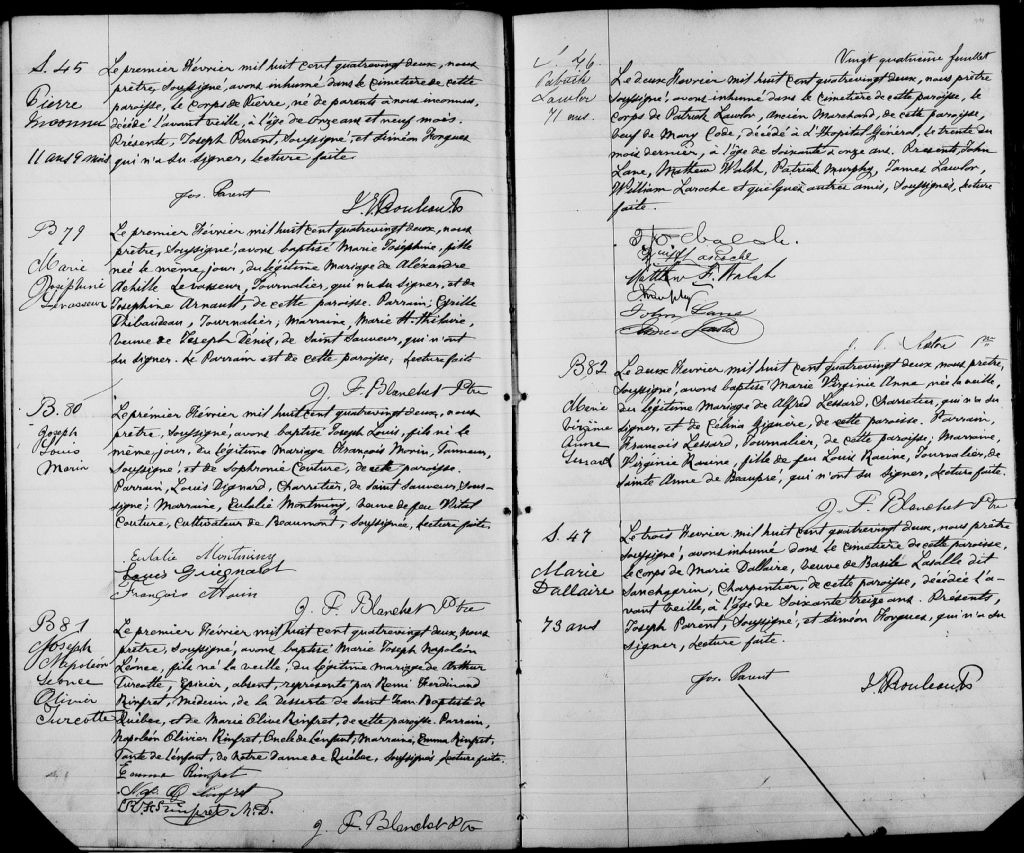 S. 45
Pierre
Inconnu
11 ans 9 mois
Le premier Février mil huit cent quatrevingt deux, nous
prêtre, soussigné, avons inhumé dans le cimetière de cette
paroisse, le corps de Pierre, né de parents à nous inconnus,
décédé l'avant veille, à l'âge de onze ans et neuf mois.
Présents, Joseph Parent, soussigné, et Siméon Forgues
qui n'a su signer, lecture faite.
Jos. Parent
B 79
Marie
Josephine
Levasseur
Le premier Février mil huit cent quatrevingt deux, nous
prêtre, soussigné, avons baptisé Marie Josephine, fille
née le même jour, du légitime mariage de Alexandre
Achille Levasseur, Journalier, qui n'a su signer, et de
Josephine Arnault, de cette paroisse. Parrain, Cyrille
Thibaudeau, Journalier; Marraine, Marie H.
veuve de Joseph Denis, de Saint Sauveur, qui n'ont
su signer. Le Parrain est de cette paroisse, Lecture faite
J. F. Blanchet Ptre
B. 80
Joseph
Louis
Morin
Le premier Février mil huit cent quatrevingt deux, nous
prêtre, soussigné, avons baptisé Joseph Louis, fils né le
même jour, du légitime mariage François Morin, Tanneur,
soussigné, et de Sophronie Couture, de cette paroisse.
Parrain, Louis Dignard, Charretier, de Saint Sauveur, sous-
signé; Marraine, Eulalie Montminy, veuve de feu Vital
Couture, Cultivateur de Beaumont, soussignée, Lecture faite
Eulalie Montminy
Louis
François Morin
J. F. Blanchet Ptre
B 81
Joseph
Napoléon
Léonce
Olivier
Turcotte
Le premier Février mil huit cent quatrevingt deux, nous
prêtre, soussigné, avons baptisé Marie Joseph Napoléon
Léonce, fils né la veille, du légitime mariage de Arthur
Turcotte, Epicier, absent, représenté par Remi Ferdinand
Rinfret, Médecin, de la Desserte de Saint Jean-Baptiste de
Québec, et de Marie Olive Rinfret, de cette paroisse. Parrain,
Napoléon Olivier Rinfret, Oncle de l'enfant, Marraine, Emma Rinfret,
Tante de l'enfant, de Notre Dame de Québec, soussignés Lecture faite.
Emma Rinfret
Nap. O. Rinfret
R. F. Rinfret M.D.
J. F. Blanchet Ptre
Vingt quatrième feuillet
S. 46.
Patrick
Lawlor
71 ans.
Le deux Février mil huit cent quatrevingt deux, nous prêtre
soussigné, avons inhumé dans le cimetière de cette paroisse, le
corps de Patrick Lawlor, Ancien Marchand, de cette paroisse,
veuf de Mary Code, décédé à l'Hopital Général, le trente du
mois dernier, à l'âge de soixante & onze ans. Présents, John
Lane, Mathew Walsh, Patrick Murphy, James Lawlor,
William Laroche et quelques autres amis, soussignés, Lecture
faite.
Matthew F. Walsh
John Lane
James Lawlor
B 82
Marie
Virginie
Anne
Lessard
Le deux Février mil huit cent quatrevingt deux, nous prêtre,
soussigné, avons baptisé Marie Virginie Anne née la veille,
du légitime mariage de Alfred Lessard, Charretier, qui n'a su
signer, et de Célina Vignere, de cette paroisse. Parrain,
François Lessard, Journalier, de cette paroisse; Marraine,
Virginie Racine, fille de feu Louis Racine, Journalier, de
Sainte Anne de Beaupré, qui n'ont su signer, Lecture faite.
J. F. Blanchet Ptre
S. 47
Marie
Dallaire
73 ans
Le trois Février mil huit cent quatrevingt deux, nous prêtre
soussigné, avons inhumé dans le cimetière de cette paroisse,
le corps de Marie Dallaire, veuve de Basile Lasalle dit
Sanchagrin, Charpentier, de cette paroisse, décédée l'a-
vant veille, à l'âge de soixante treize ans. Présents,
Joseph Parent, soussigné, et Siméon Forgues, qui n'a su
signer, Lecture faite.
Jos. Parent